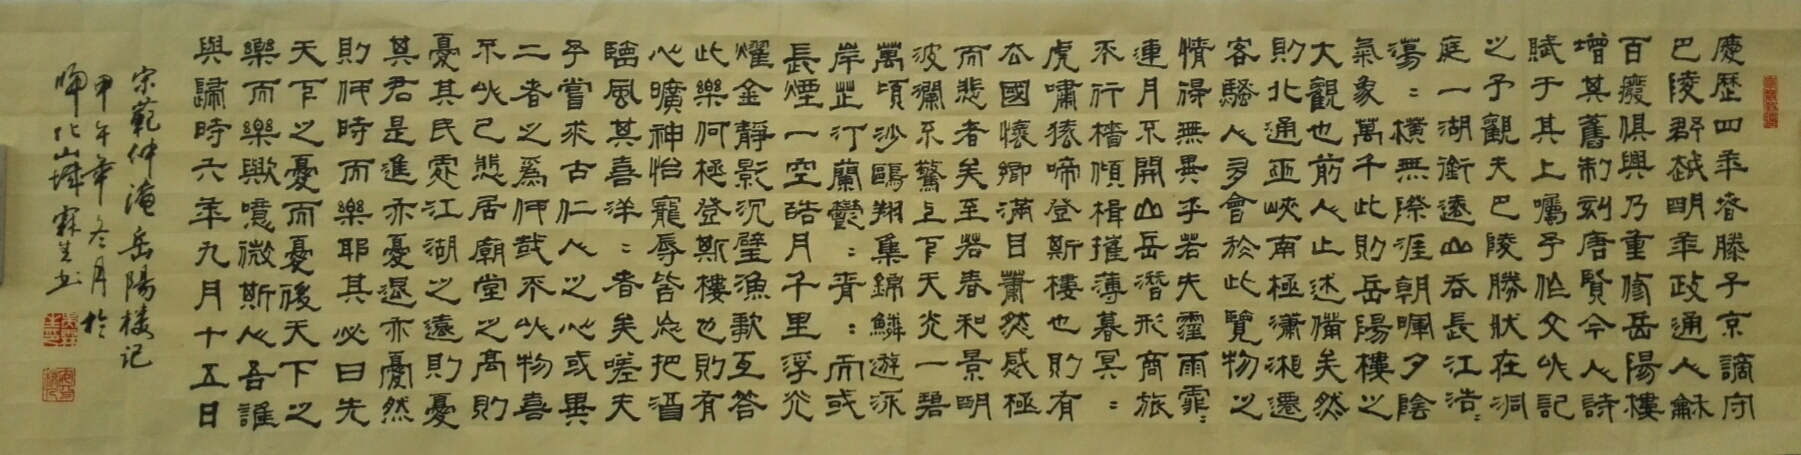 慶歷四年春滕子京謫守
巴陵郡越明年政通人龢
百廢俱興乃重修岳陽樓
增其舊制刻唐賢今人詩
賦于其上囑予作文以記
之予觀夫巴陵勝狀在洞
庭一湖銜遠山吞長江浩:
蕩:橫無際涯朝暉夕陰
氣象萬千此則岳陽樓之
大觀也前人止述備矣然
則北通巫峽南極瀟湘遷
客騷人多會於此覽物之
情得無異乎若夫霪雨霏:
連月不開山岳潛形商旅
不行檣傾楫摧薄暮冥:
虎嘯猿啼登斯樓也則有
去國懷鄉滿目蕭然感極
而悲者矣至若春和景明
波瀾不驚上下天光一碧
萬頃沙鷗翔集錦鱗遊泳
岸芷汀蘭鬱:青:而或
長煙一空皓月千里浮光
耀金靜影沉璧漁歌互答
此樂何極登斯樓也則有
心曠神怡寵辱皆忘把酒
臨風其喜洋:者矣嗟夫
予嘗求古仁人之心或異
二者之為何哉不以物喜
不以己悲居廟堂之高則
憂其民處江湖之遠則憂
其君是進亦憂退亦憂然
則何時而樂耶其必曰先
天下之憂而憂後天下之
樂而樂歟噫微斯人吾誰
與歸時六年九月十五日
宋範仲淹岳陽楼记
甲午年冬月於
化山城霖生书